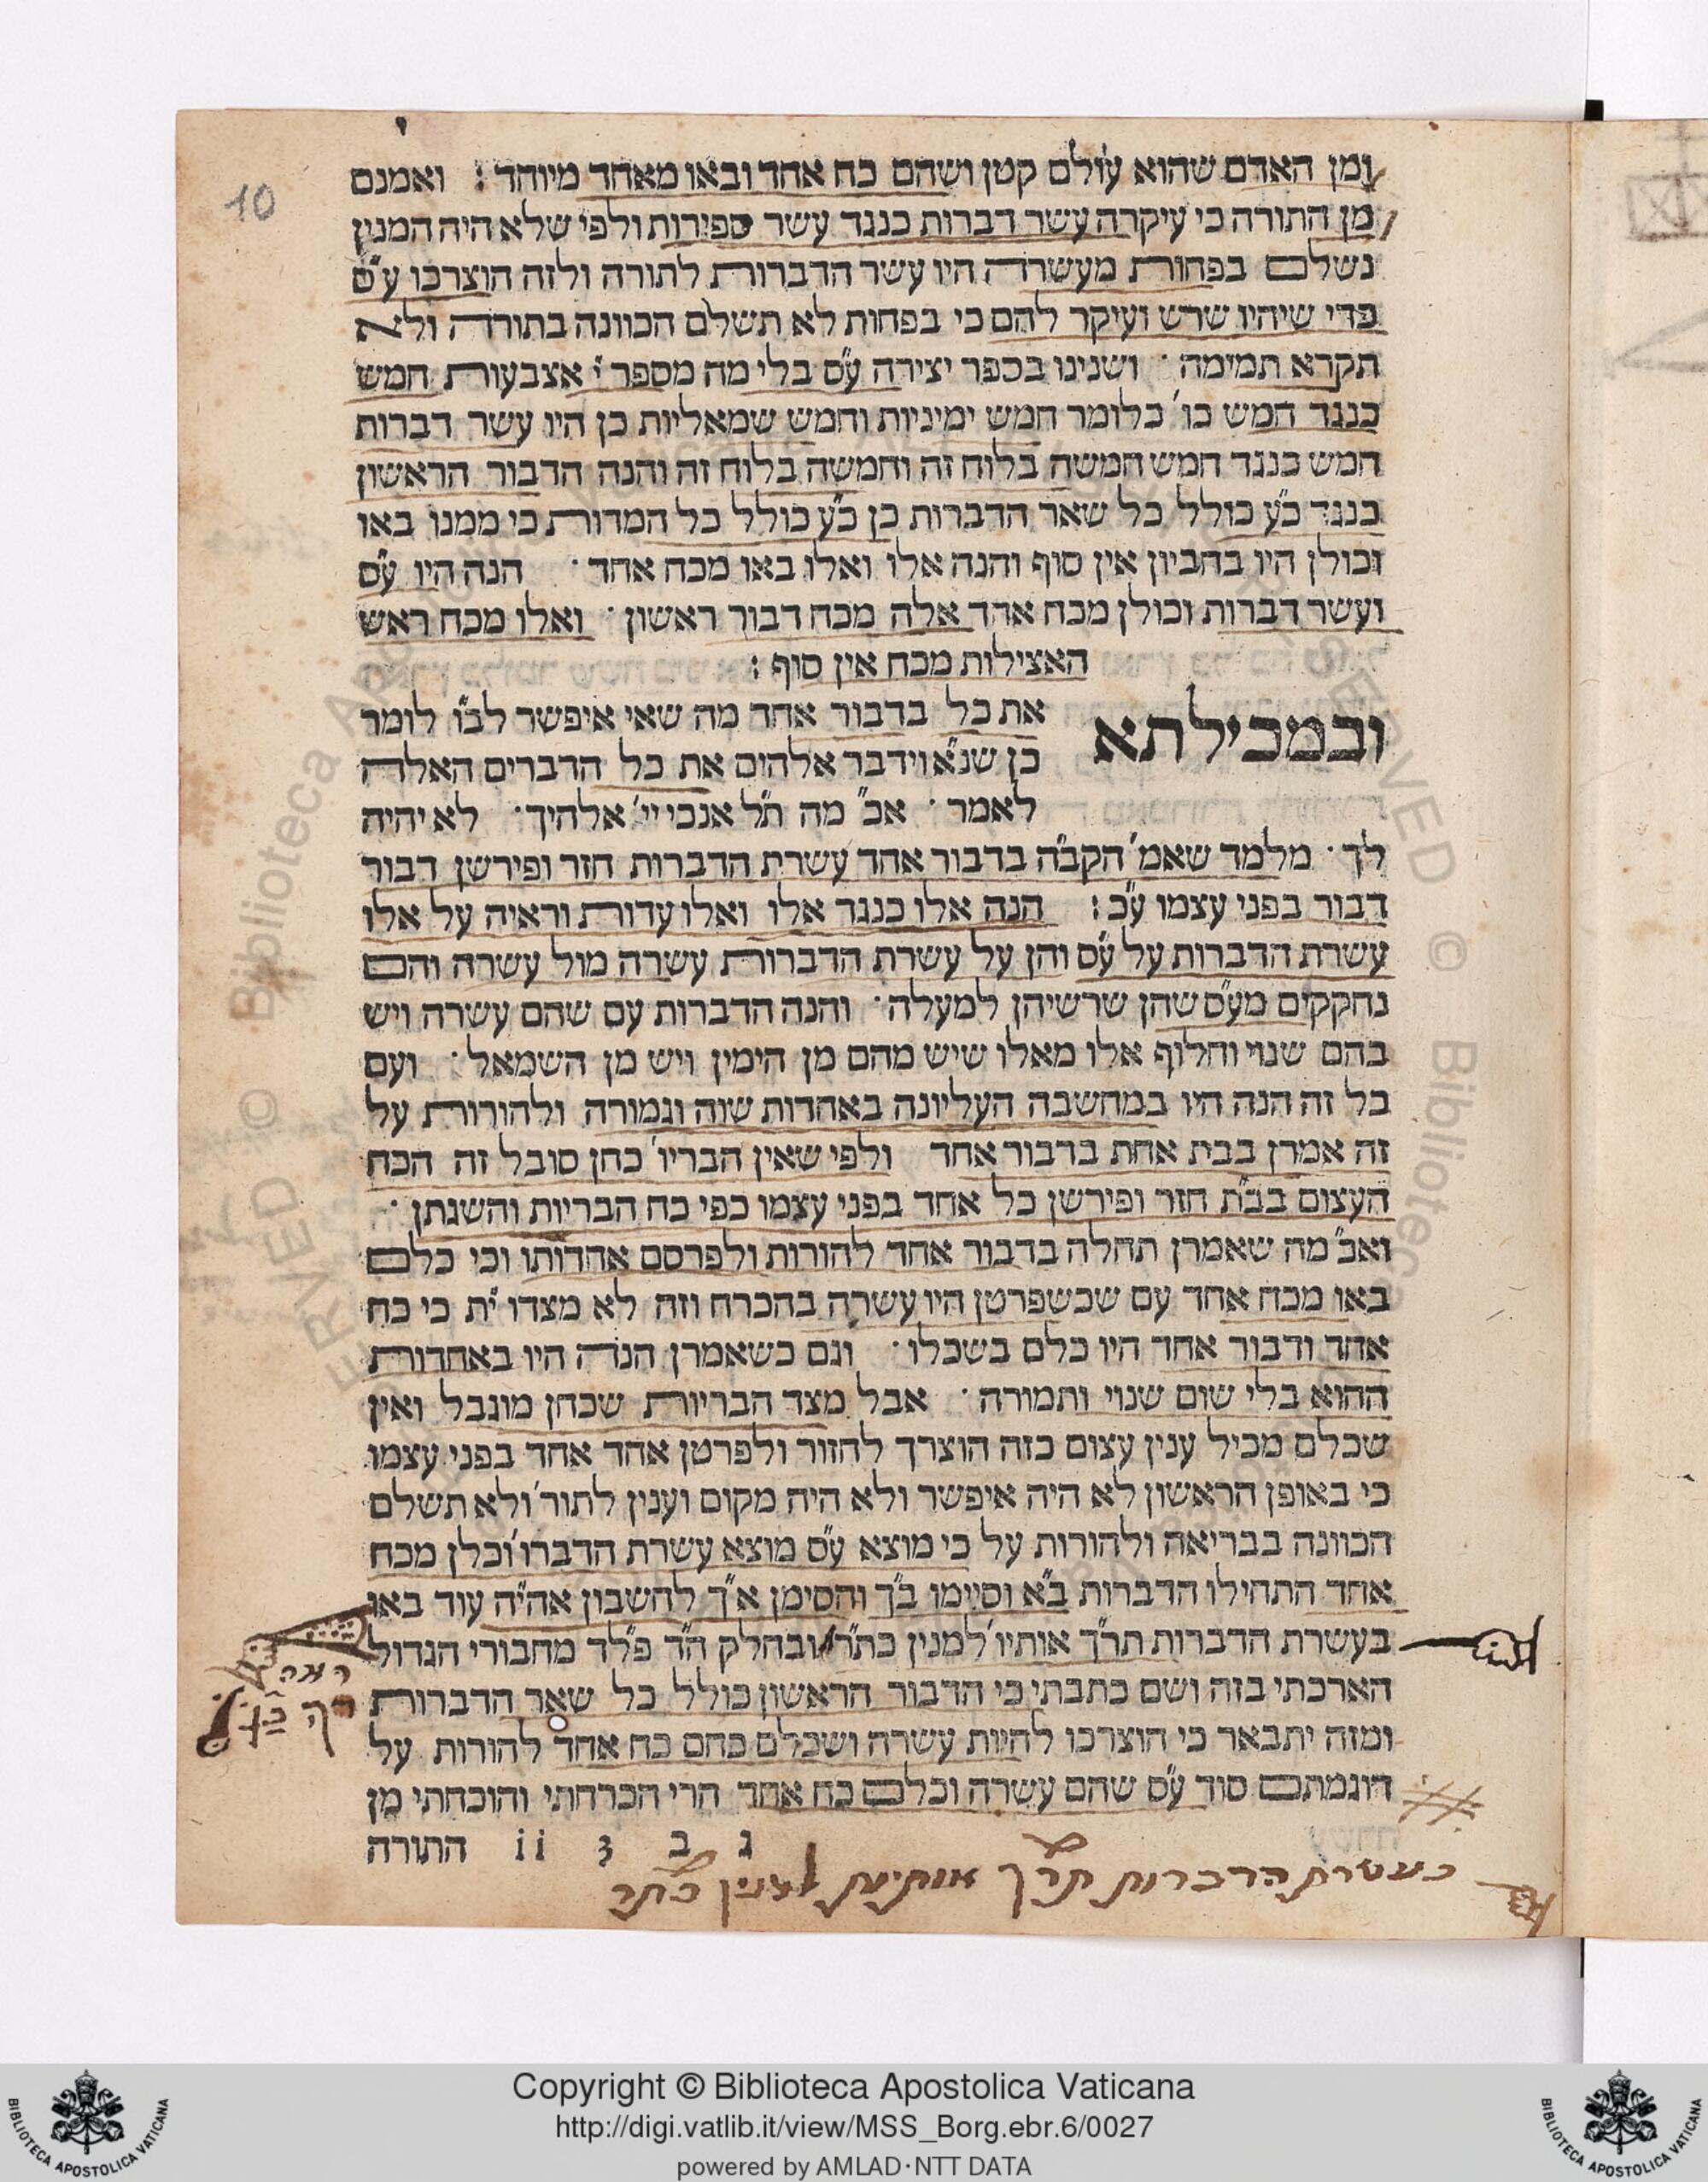 י
10
ומן האדם שהוא עולם קטן ושהם כח אחד ובאו מאחד מיוחד : ואמנם
מן התורה כי עיקרה עשר דברות כנגד עשר ספירות ולפי שלא היה המנין
נשלם בפחות מעשרה היו עשר הדברות לתורה ולזה הוצרכו ע"ס
כדי שיהיו שרש ועיקר להם כי בפחות לא תשלם הכוונה בתורה ולא
תקרא תמימה · ושנינו בספר יצירה ע"ס בלי מה מספר י' אצבעות חמש
כנגד חמש כו' כלומר חמש ימיניות וחמש שמאליות כן היו עשר דברות
חמש כנגד חמש חמשה בלוח זה וחמשה בלוח זה והנה הדבור הראשון
כנגד כ"ע כולל כל שאר הדברות כן כ"ע כולל כל המדות כי ממנו באו
וכולן היו בחביון אין סוף והנה אלו ואלו באו מכח אחד · הנה היו ע"ס
ועשר דברות וכולן מכח אחד אלה מכח דבור ראשון · ואלו מכח ראש
האצילות מכח אין סוף :
ובמכילתא
את כל בדבור אחד מה שאי איפשר לב"ו לומר
כן שנ"א וידבר אלהים את כל הדברים האלה
לאמר · אכ" מה ת"ל אנכי יי' אלהיך · לא יהיה
לך · מלמד שאמ' הקב"ה בדבור אחד עשרת הדברות חזר ופירשן דבור
דבור בפני עצמו ע"כ : הנה אלו כנגד אלו ואלו עדות וראיה על אלו
עשרת הדברות על ע"ס והן על עשרת הדברות עשרה מול עשרה והם
נחקקים מע"ס שהן שרשיהן למעלה · והנה הדברות עם שהם עשרה ויש
בהם שנוי וחלוף אלו מאלו שיש מהם מן הימין ויש מן השמאל · ועם
כל זה הנה היו במחשבה העליונה באחדות שוה וגמורה ולהורות על
זה אמרן בבת אחת בדבור אחד ולפי שאין הבריו' כחן סובל זה הכח
העצום בב"ת חזר ופירשן כל אחד בפני עצמו כפי כח הבריות והשגתן ·
ואכ" מה שאמרן תחלה בדבור אחד להורות ולפרסם אחדותו וכי כלם
באו מכח אחד עם שכשפרטן היו עשרה בהכרח וזה לא מצדו ית' כי כח
אחד ודבור אחד היו כלם בשכלו · וגם כשאמרן הנה היו באחדות
ההוא בלי שום שנוי ותמורה · אבל מצד הבריות שכחן מוגבל ואין
שכלם מכיל ענין עצום כזה הוצרך לחזור ולפרטן אחד אחד בפני עצמו
כי באופן הראשון לא היה איפשר ולא היה מקום וענין לתור' ולא תשלם
הכוונה בבריאה ולהורות על כי מוצא ע"ס מוצא עשרת הדברו' וכלן מכח
אחד התחילו הדברות ב"א וסיימו ב"ך והסימן א"ך לחשבון אהי"ה עוד באו
בעשרת הדברות תר"ך אותיו' למנין כת"ר ובחלק ה"ד פ"לד מחבורי הגדול
הארכתי בזה ושם כתבתי כי הדבור הראשון כולל כל שאר הדברות
ומזה יתבאר כי הוצרכו להיות עשרה ושכלם כחם כח אחד להורות על
דוגמתם סוד ע"ס שהם עשרה וכלם כח אחד הרי הכרחתי והוכחתי מן
ג ב 3 ii התורה
בעשרת הדברות תר"ך אותיות למנין כת"ר
Copyright © Biblioteca Apostolica Vaticana
http://digi.vatlib.it/view/MSS_Borg.ebr.6/0027
powered by AMLAD·NTT DATA
BIBLIOTECA APOSTOLICA VATICANA
BIBLIOTECA APOSTOLICA VATICANA